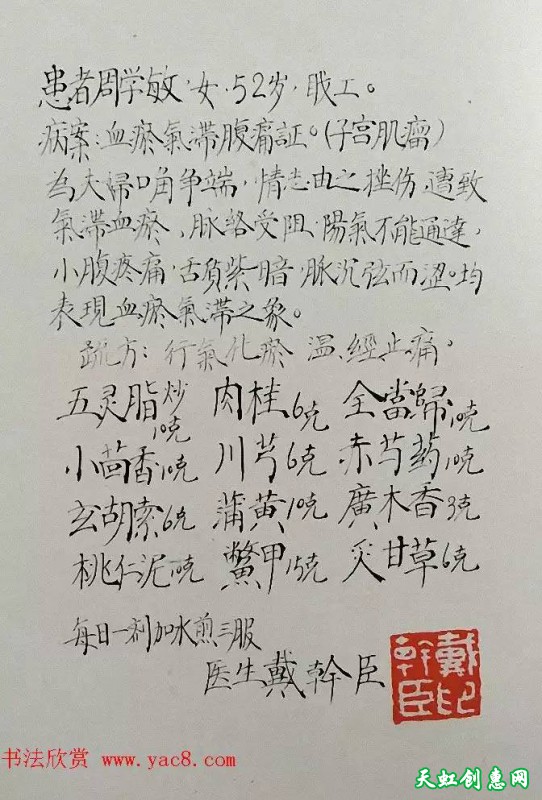 患者周学敏，女，52岁，职工。
病案：血瘀氣滞腹痛証。（子宫肌瘤）
为夫婦口角争端，情志由之挫伤，遭致
氣滞血瘀、脉諮受阻，陽氣不能通達，
小腹疼痛，舌質紫暗，脉沉弦而涩。均
表現血瘀氣滞之象。
疏方：行氣化瘀 温經止痛，
五灵脂炒10克 肉桂6克 全當歸10克
小茴香10克 川芎6克 赤芍药10克
玄胡索6克 蒲黄10克 廣木香3克
桃仁泥10克 鱉甲15克 炙甘草6克
每日一剂加水煎三服
医生戴幹臣
戴幹臣印
书法欣赏 www.yac8.com
天虹创惠网